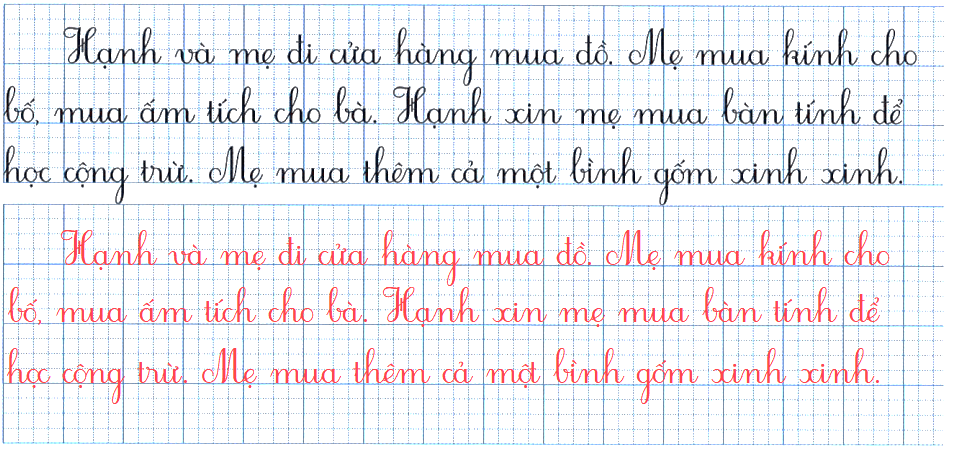 Hạnh và mẹ đi cửa hàng mua đồ. Mẹ mua kính cho
bố, mua ấm tích cho bà. Hạnh xin mẹ mua bàn tính để
học cộng trừ. Mẹ mua thêm cả một bình gốm xinh xinh.
Hạnh và mẹ đi cửa hàng mua đồ. Mẹ mua kính cho
bố, mua ấm tích cho bà. Hạnh xin mẹ mua bàn tính để
học cộng trừ. Mẹ mua thêm cả một bình gốm xinh xinh.